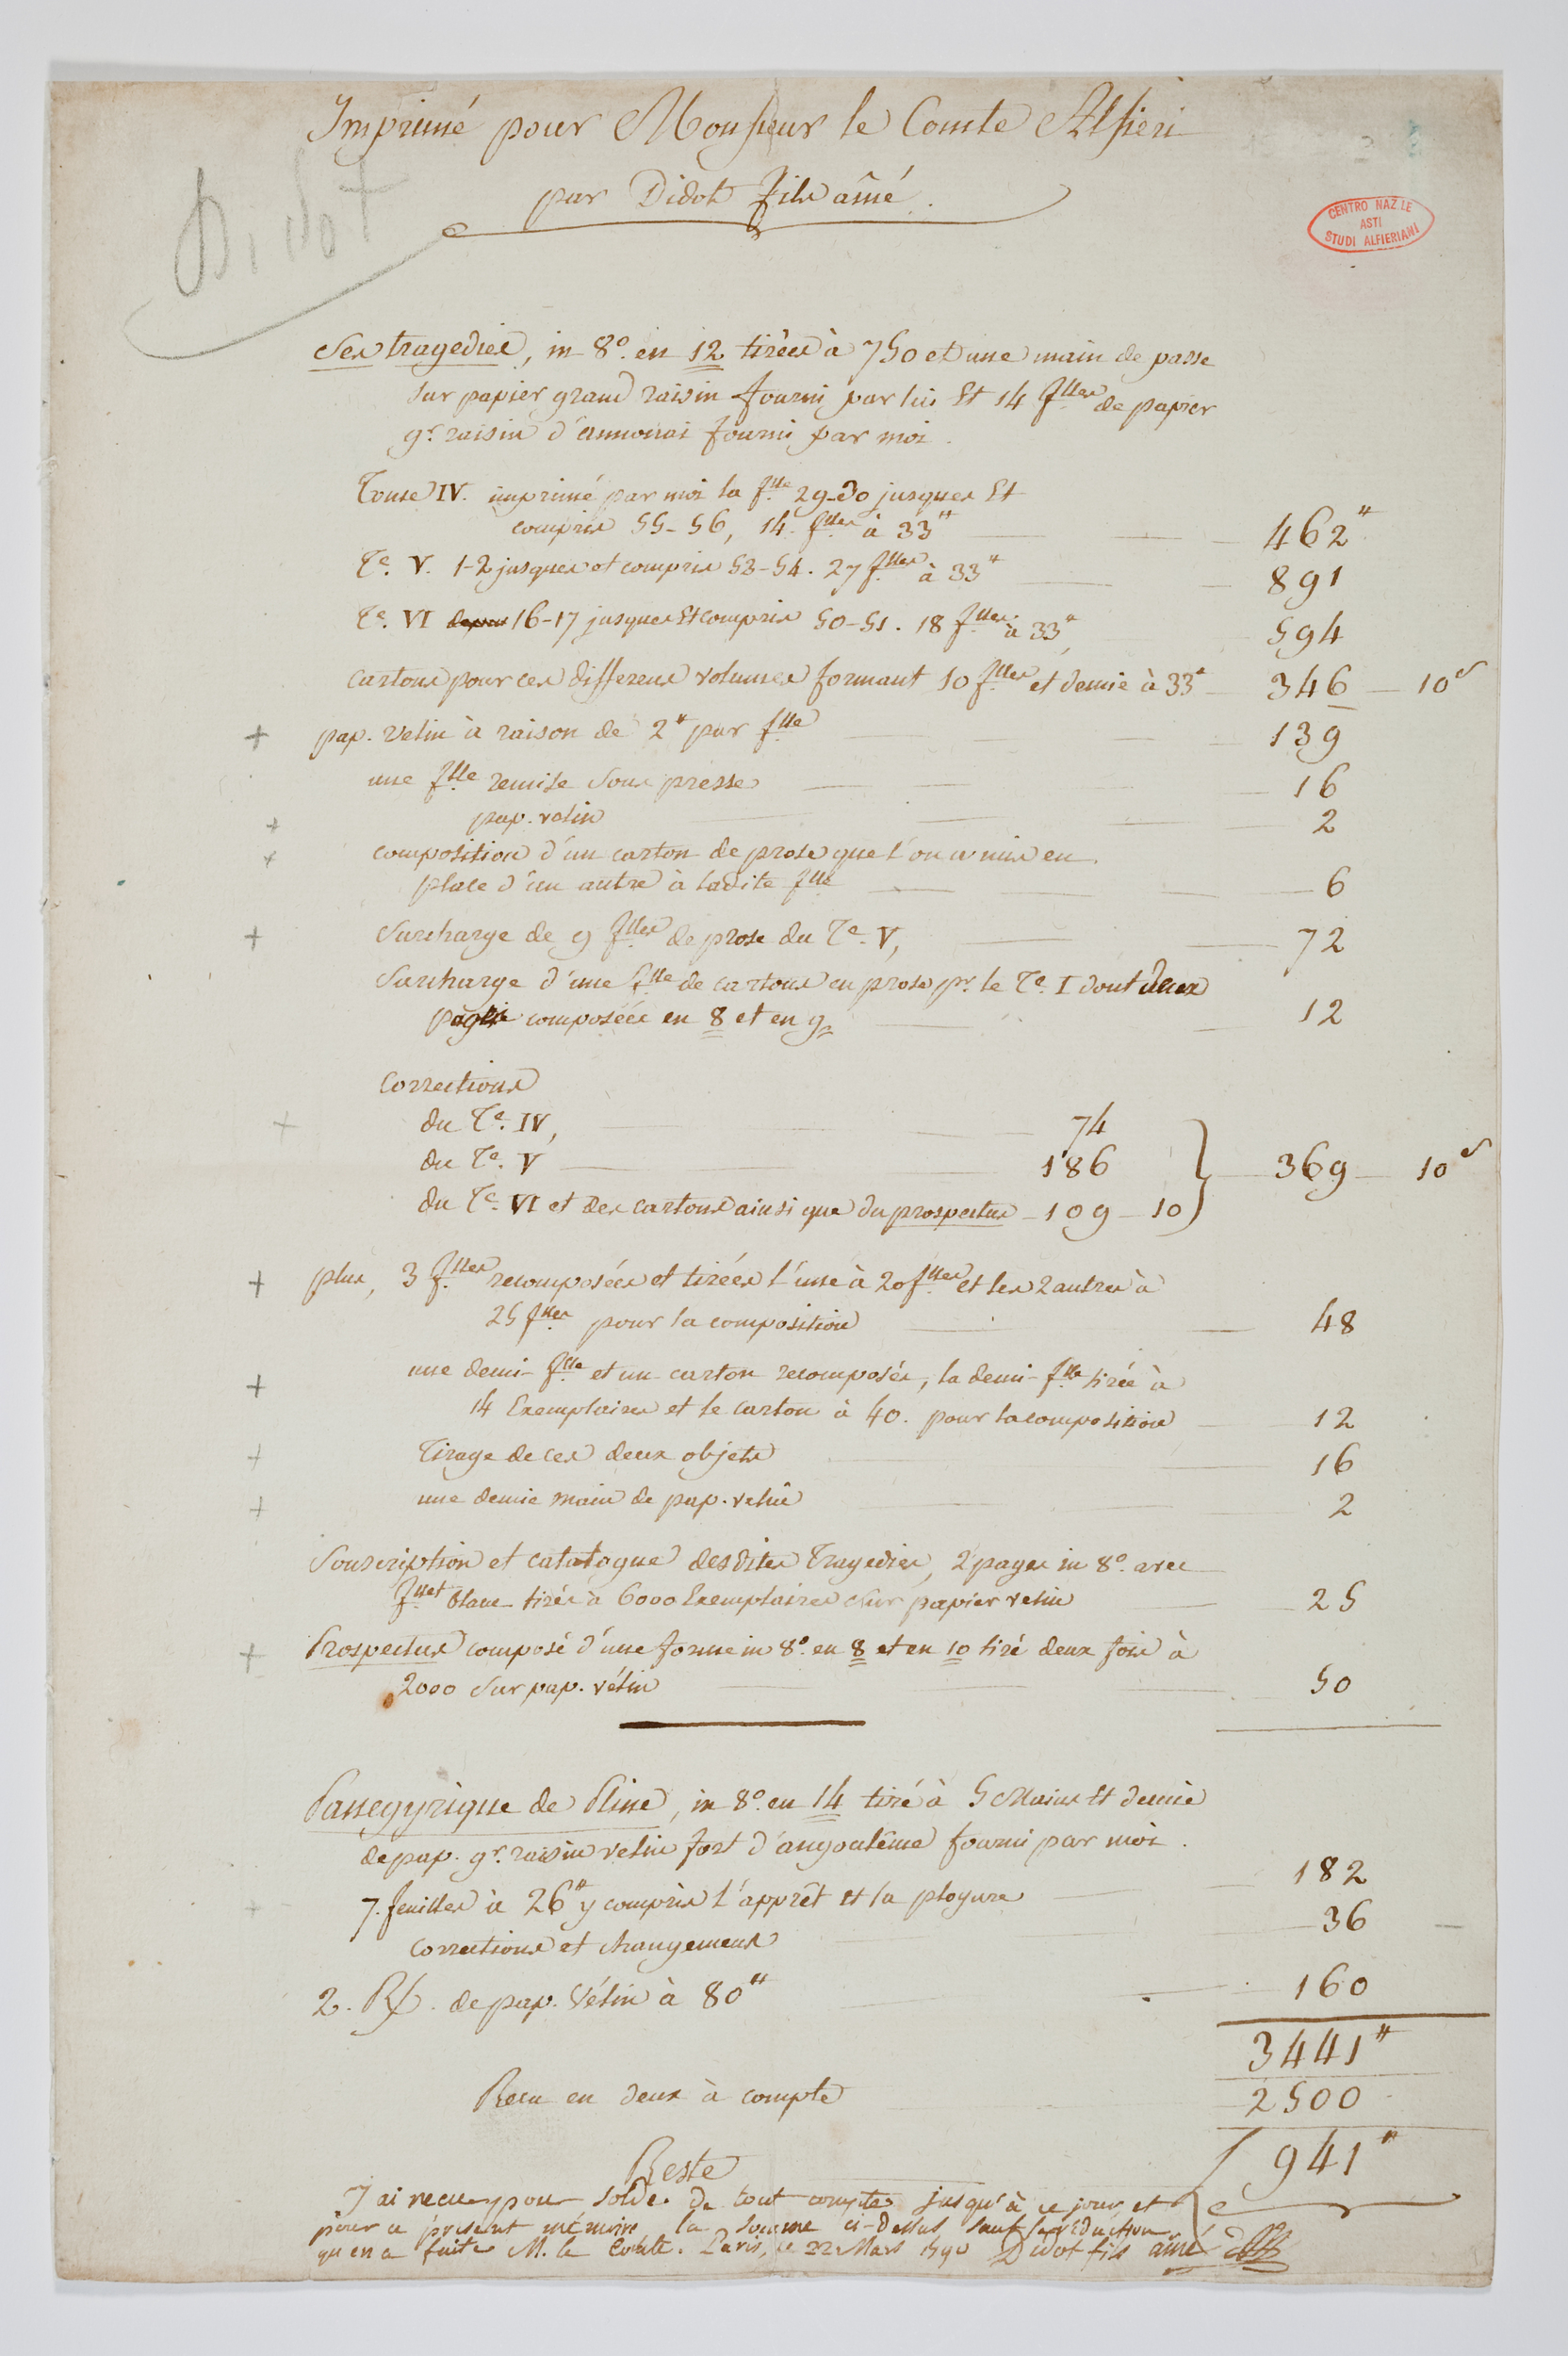 Imprimé pour Monsieur le Comte Alfieri
par Didot fils aîné.
Didot
CENTRO NAZ LE
ASTI
STUDI ALFIERIANI
Ses tragedies, in 8º. en 12 tirées à 750 et une main de passe
sur papier grand raisin fourni par lui Et 14 flles de papier
gr. raisin d'annonai fourni par moi.
Tome IV. imprimé par moi la flle 29-30 jusques Et
compris 55-56, 14. flles à 33# 462#
Te. V. 1-2 jusques et compris 53-54. 27 flles à 33# 891
Te. VI 16-17 jusques Et compris 50-51. 18 flles à 33# 594
Cartons pour ces differens volumes formant 10 flles et demie à 33# 346 10s
+ pap. velin à raison de 2# par flle 139
une flle remise sous presse 16
+ pap. velin 2
+ composition d'un carton de prose que l'on a mis en
place d'un autre à ladite flle 6
+ Surcharge de 9 flles de prose du Te. V, 72
Surcharge d'une flle de cartons en prose pr. le Te. I dont deux
pages composées en 8 et en 9 12
Corrections
+ du Te. IV, 74
du Te. V 186 } 369 10s
du Te. VI et des cartons ainsi que du prospectus 109 10
+ plus, 3 flles recomposées et tirées l'une à 20 flles et les 2 autres à
25 flles pour la composition 48
+ une demi-flle et un carton recomposés, la demi-flle tirée à
14 Exemplaires et le carton à 40. pour la composition 12
+ Tirage de ces deux objets 16
+ une demie main de pap. velin 2
Souscription et catalogue desdites Tragedies, 2 pages in 8º. avec
fllet blanc tirés à 6000 Exemplaires sur papier velin 25
+ Prospectus composé d'une forme in 8º. en 8 et en 10 tiré deux fois à
2000 sur pap. vélin 50
Panegyrique de Pline, in 8º. en 14 tiré à 5 Mains Et demie
de pap. gr. raisin velin fort d'angoulême fourni par moi.
7. feuilles à 26# y compris l'apprêt et la ployure 182
+ corrections et changemens 36
2. de pap. Vélin à 80# 160
3441#
Recu en deux à compte 2500
Reste 941#
J'ai recu pour solde de tout compte jusqu'à ce jour et
pour ce présent mémoire la somme ci-dessus sauf la réduction
qu'en a faite M. le Comte. Paris, ce 22 Mars 1790 Didot fils aîné